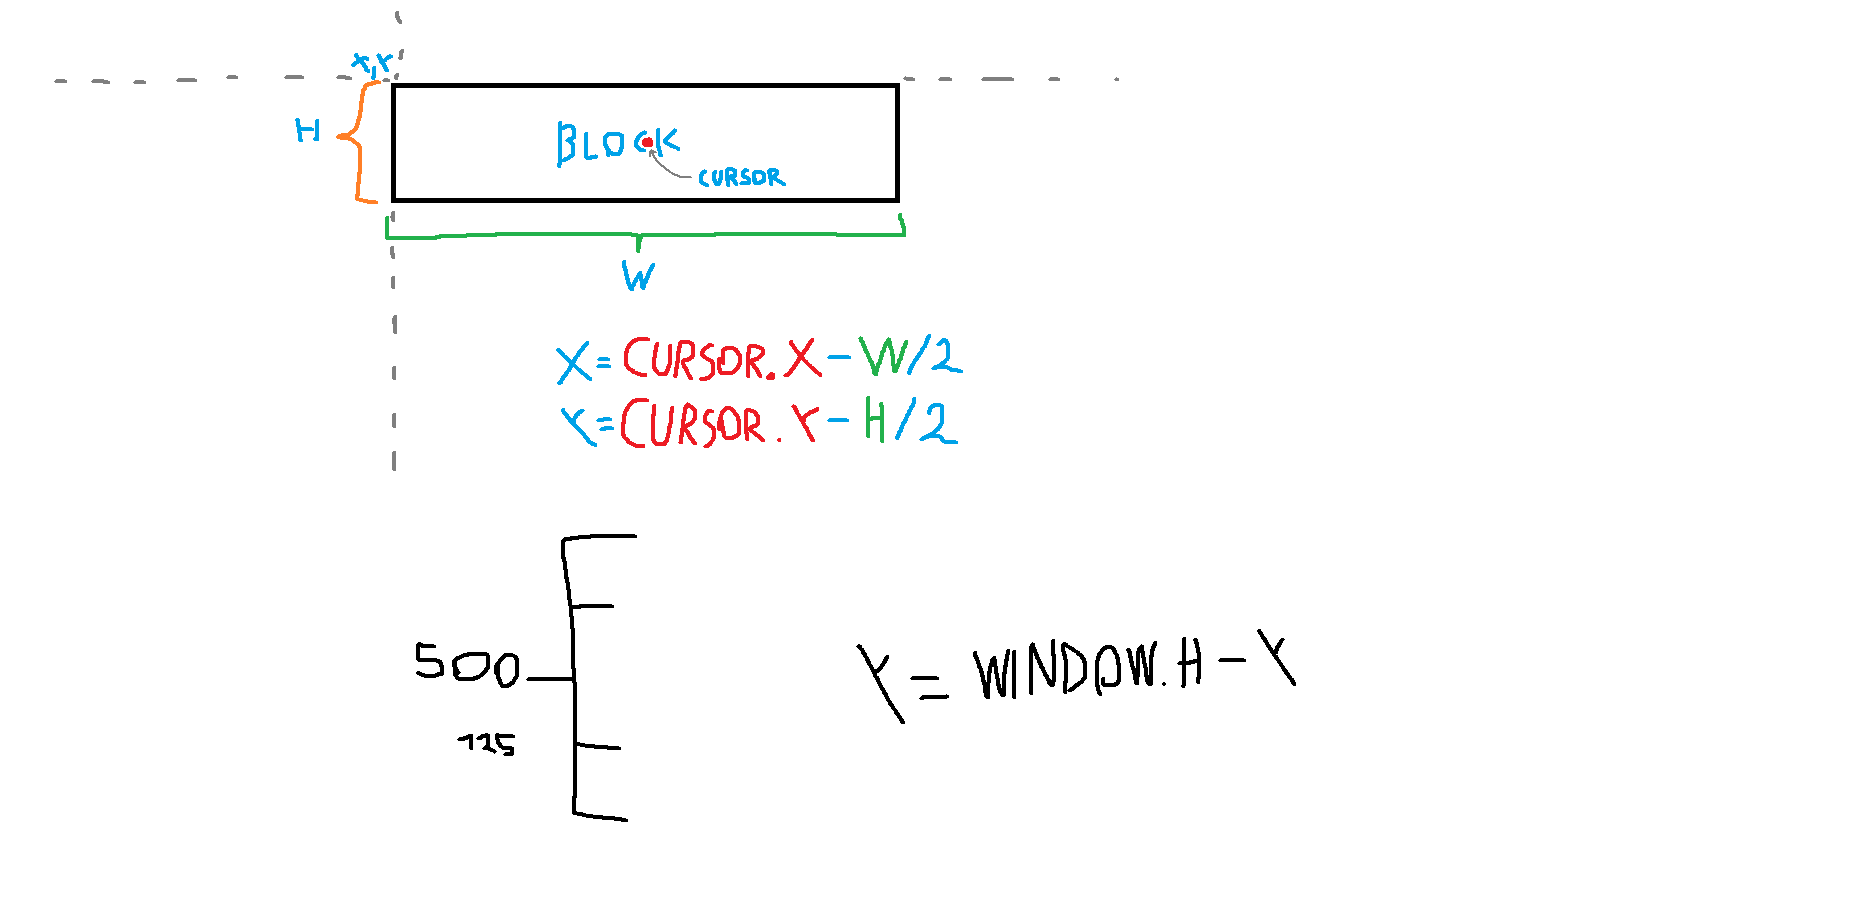 X,Y
H
BLOCK
CURSOR
W
X=CURSOR.X-W/2
Y=CURSOR.Y-H/2
500
125
Y=WINDOW.H-Y